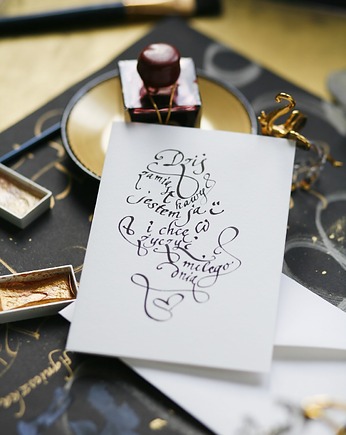 Dziś
zamiast kawy
jestem ja :)
i chcę Ci
życzyć
miłego
dnia
Agnieszka